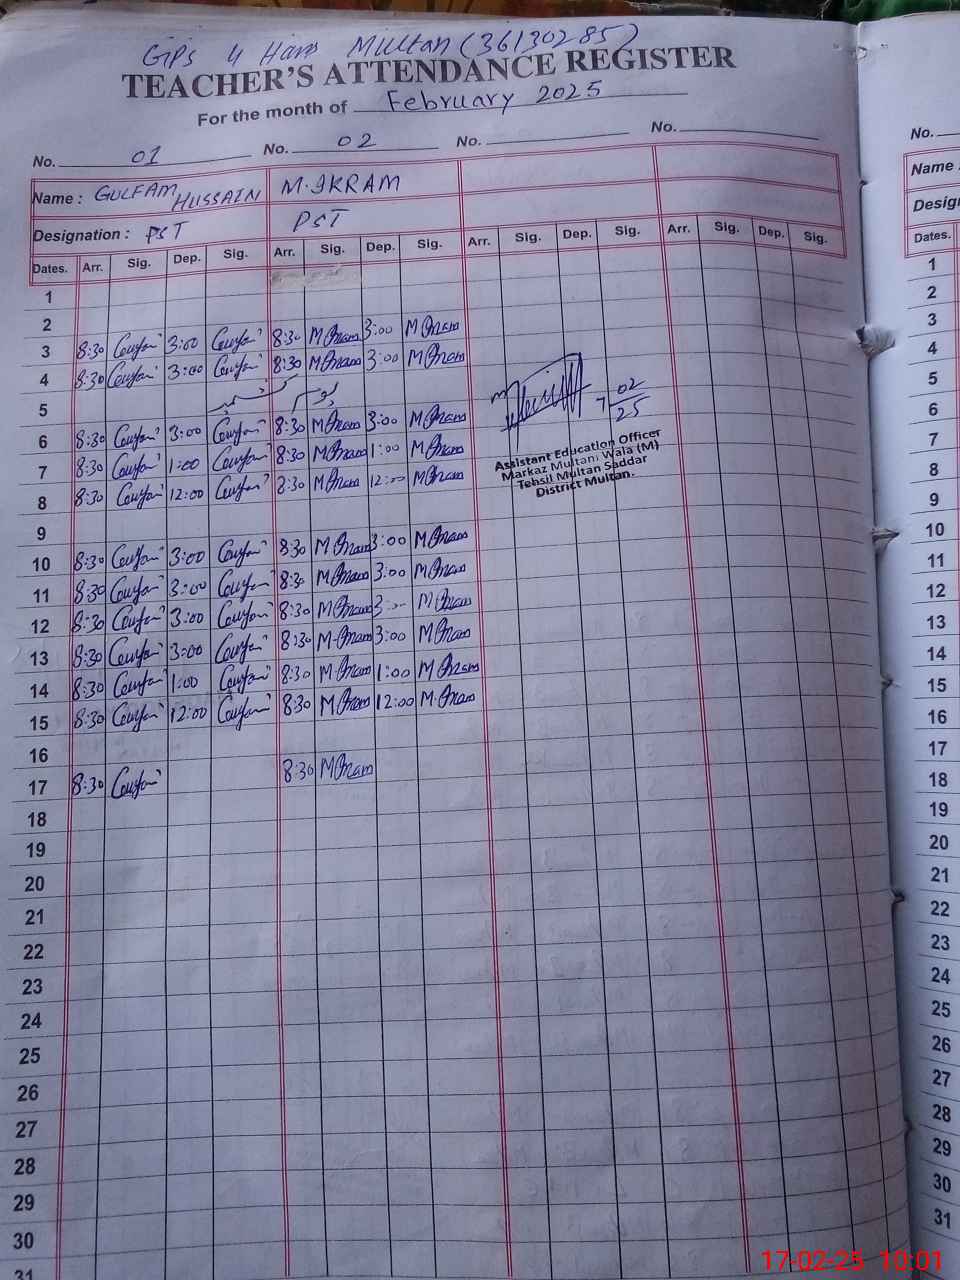 GPS 4 Hans Multan (36130285)
TEACHER'S ATTENDANCE REGISTER
For the month of February 2025
No. 01 No. 02 No. No.
Name : GULFAM HUSSAIN M. IKRAM
Designation : PST PST
Dates. Arr. Sig. Dep. Sig. Arr. Sig. Dep. Sig. Arr. Sig. Dep. Sig. Arr. Sig. Dep. Sig.
1
2
3 8:30 3:00 8:30 M Ikram 3:00 M Ikram
4 8:30 3:00 8:30 M Ikram 3:00 M Ikram
5
6 8:30 3:00 8:30 M Ikram 3:00 M Ikram
7 8:30 1:00 8:30 M Ikram 1:00 M Ikram
8 8:30 12:00 8:30 M Ikram 12:00 M Ikram
7 02
25
Assistant Education Officer
Markaz Multani Wala (M)
Tehsil Multan Saddar
District Multan.
9
10 8:30 3:00 8:30 M Ikram 3:00 M Ikram
11 8:30 3:00 8:30 M Ikram 3:00 M Ikram
12 8:30 3:00 8:30 M Ikram 3:00 M Ikram
13 8:30 3:00 8:30 M Ikram 3:00 M Ikram
14 8:30 1:00 8:30 M Ikram 1:00 M Ikram
15 8:30 12:00 8:30 M Ikram 12:00 M. Ikram
16
17 8:30 8:30 M Ikram
18
19
20
21
22
23
24
25
26
27
28
29
30
31
No.
Name :
Desig
Dates.
1
2
3
4
5
6
7
8
9
10
11
12
13
14
15
16
17
18
19
20
21
22
23
24
25
26
27
28
29
30
31
17-02-25 10:01